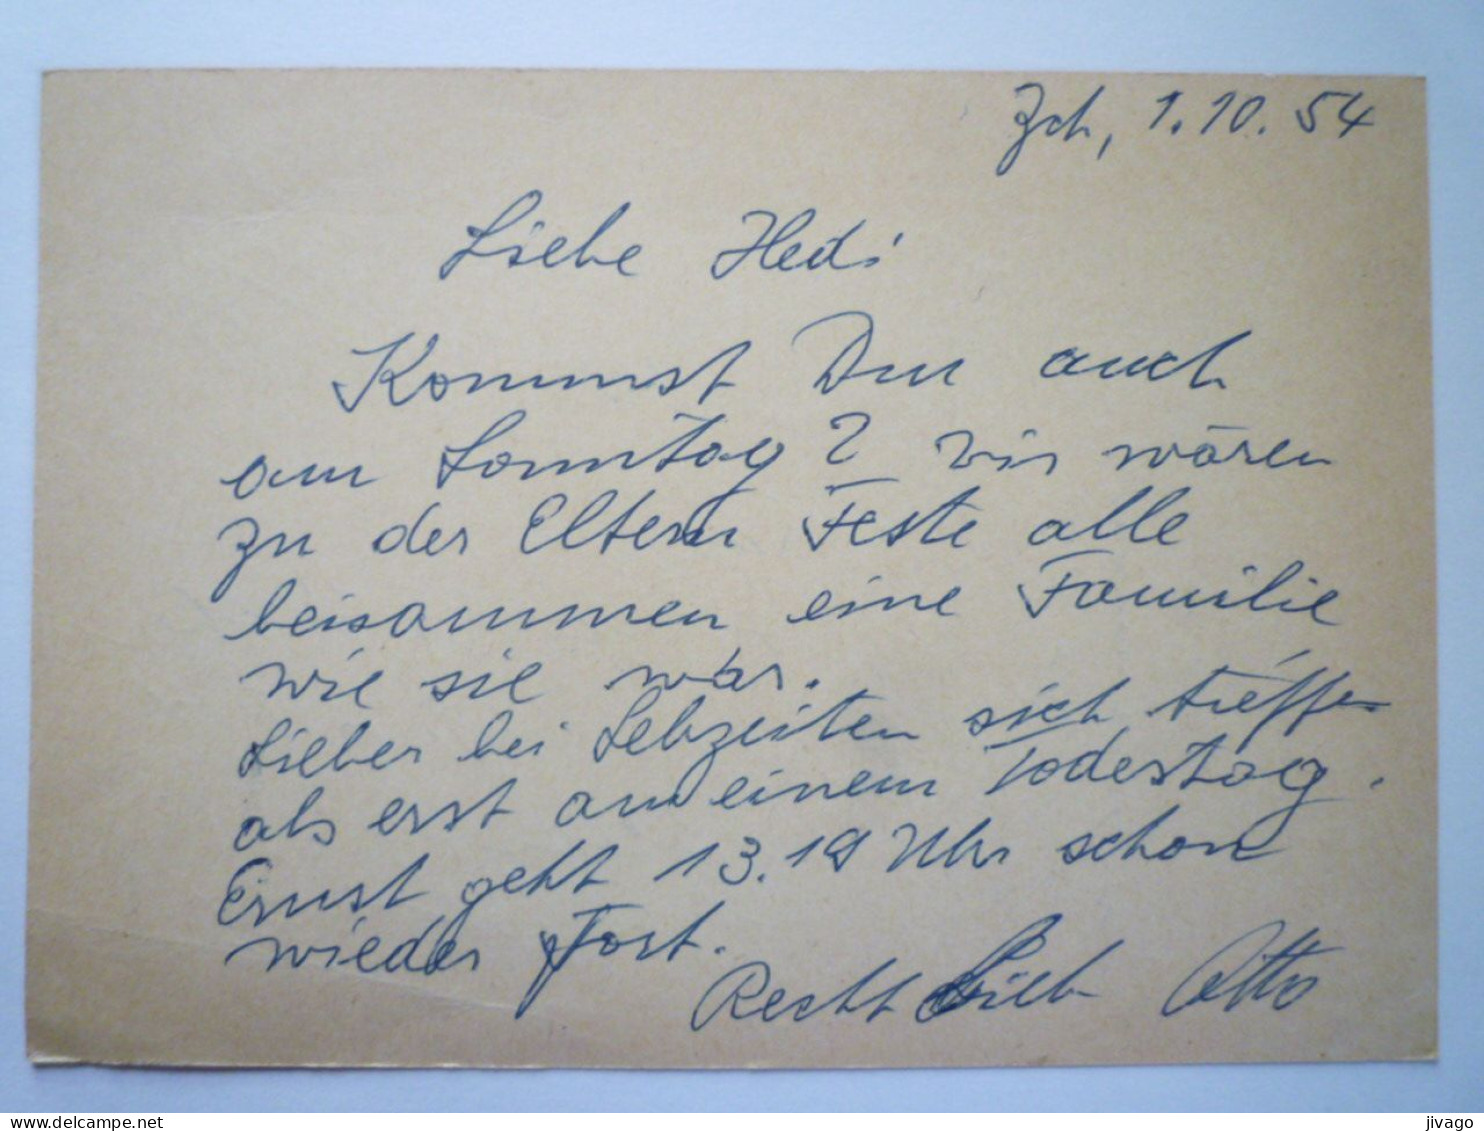 Zch, 1.10.54
Liebe Hedi
Kommst Du auch
am Sonntag? Wir wären
zu der Eltern Feste alle
beisammen eine Familie
wie sie war.
Lieber bei Lebzeiten sich treffen
als erst an einem Todestag.
Ernst geht 13.19 Uhr schon
wieder fort.
Recht Lieb Otto
delcampe.net
jivago